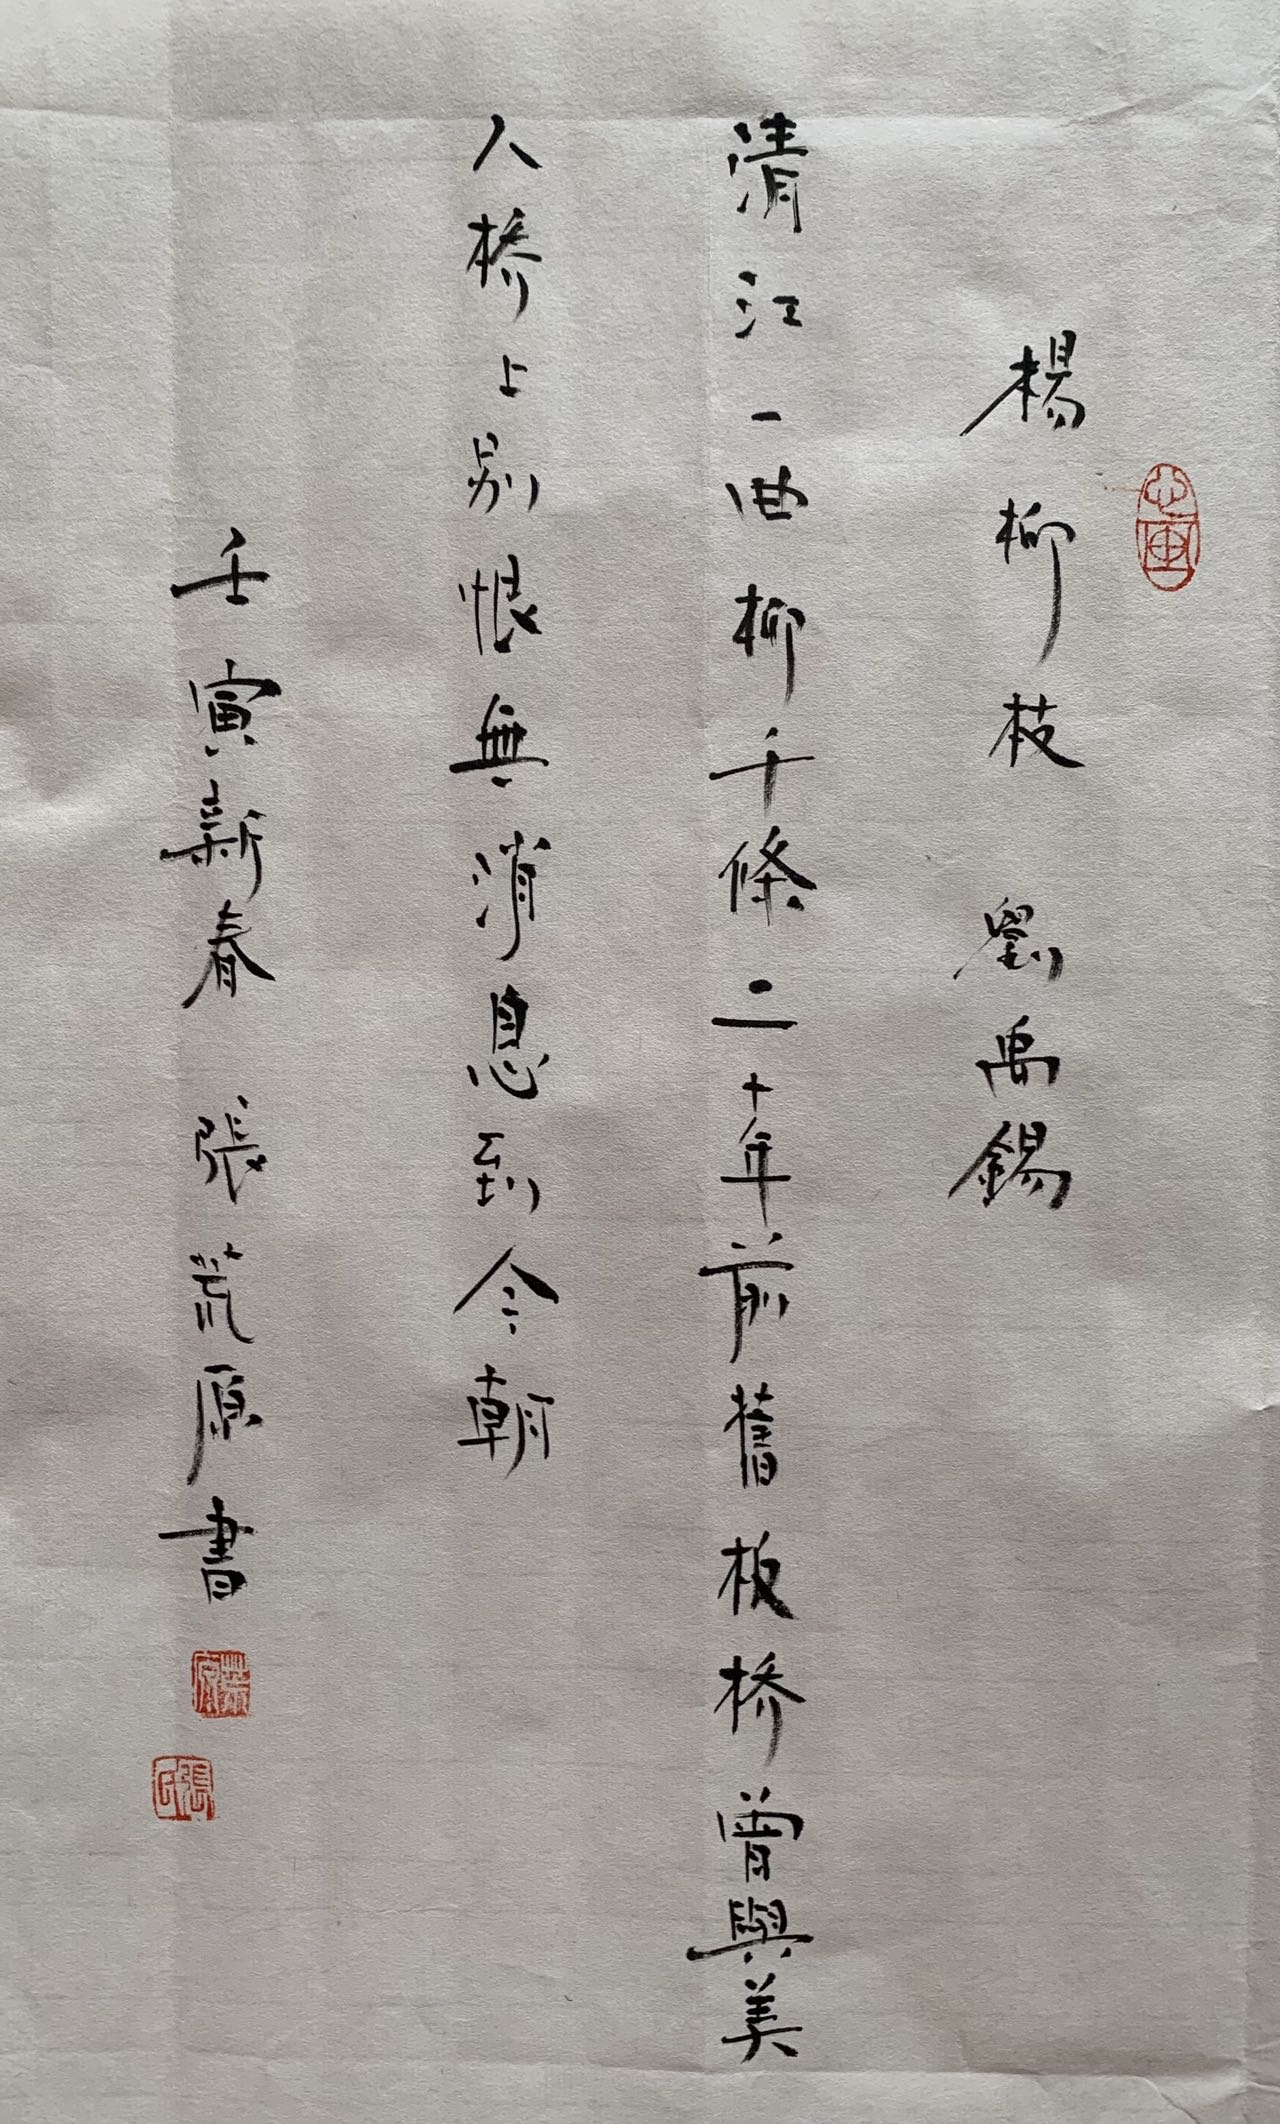 楊柳枝 劉禹錫
清江一曲柳千條二十年前舊板橋曾與美
人橋上別恨無消息到今朝
壬寅新春 張荒原書
荒原
張印